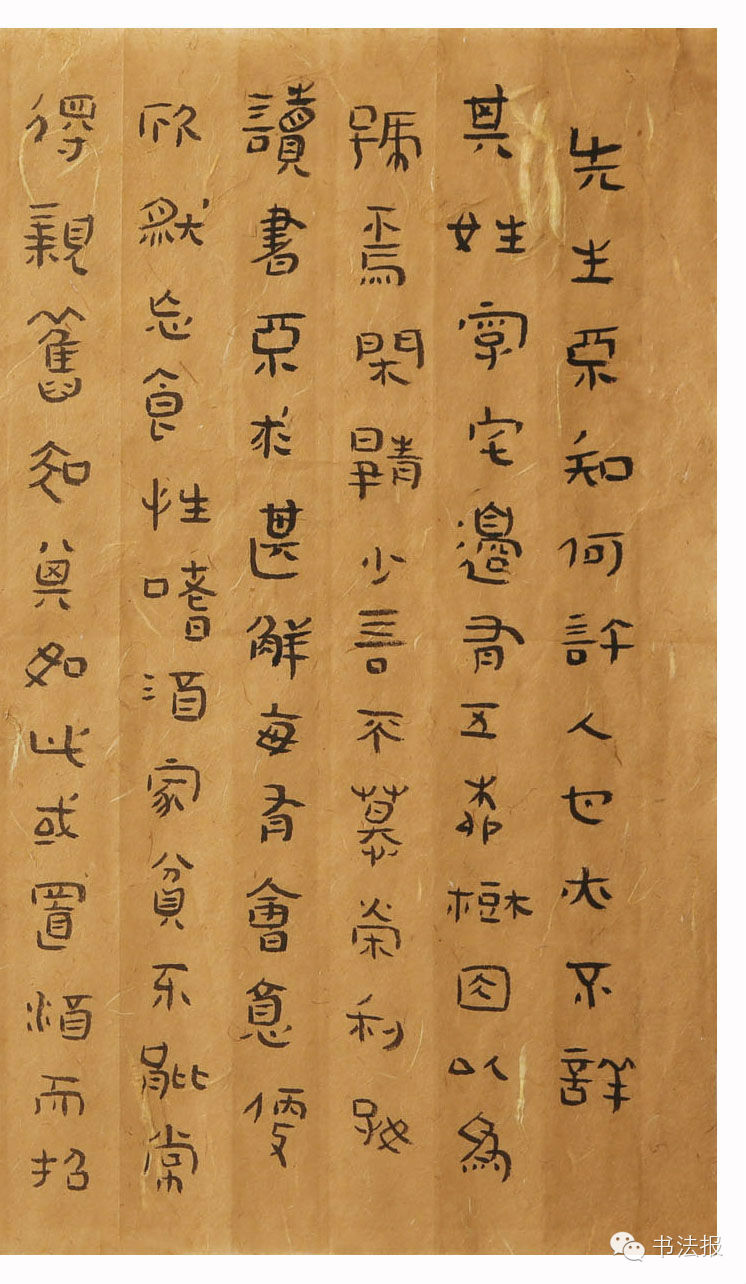 先生不知何許人也亦不詳
其姓字宅邊有五柳樹因以為
號焉閑靜少言不慕榮利好
讀書不求甚解每有會意便
欣然忘食性嗜酒家貧不能常
得親舊知其如此或置酒而招
书法报